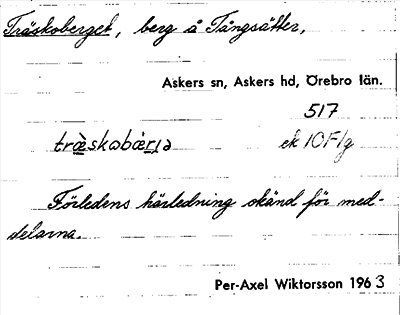 Träskoberget, berg å Tångsätter,
Askers sn, Askers hd, Örebro län.
517
træ̀skobær̩ɟə ek 10F/g
Förledens härledning okänd för med-
delarna.
Per-Axel Wiktorsson 1963